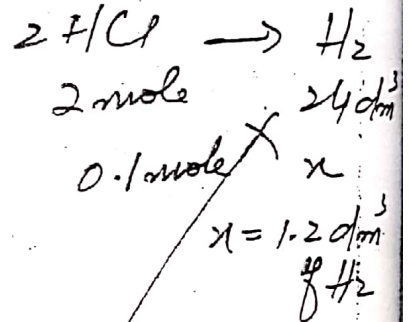 2 HCl → H₂
2 mole 24 dm³
0.1 mole x
x = 1.2 dm³
of H₂